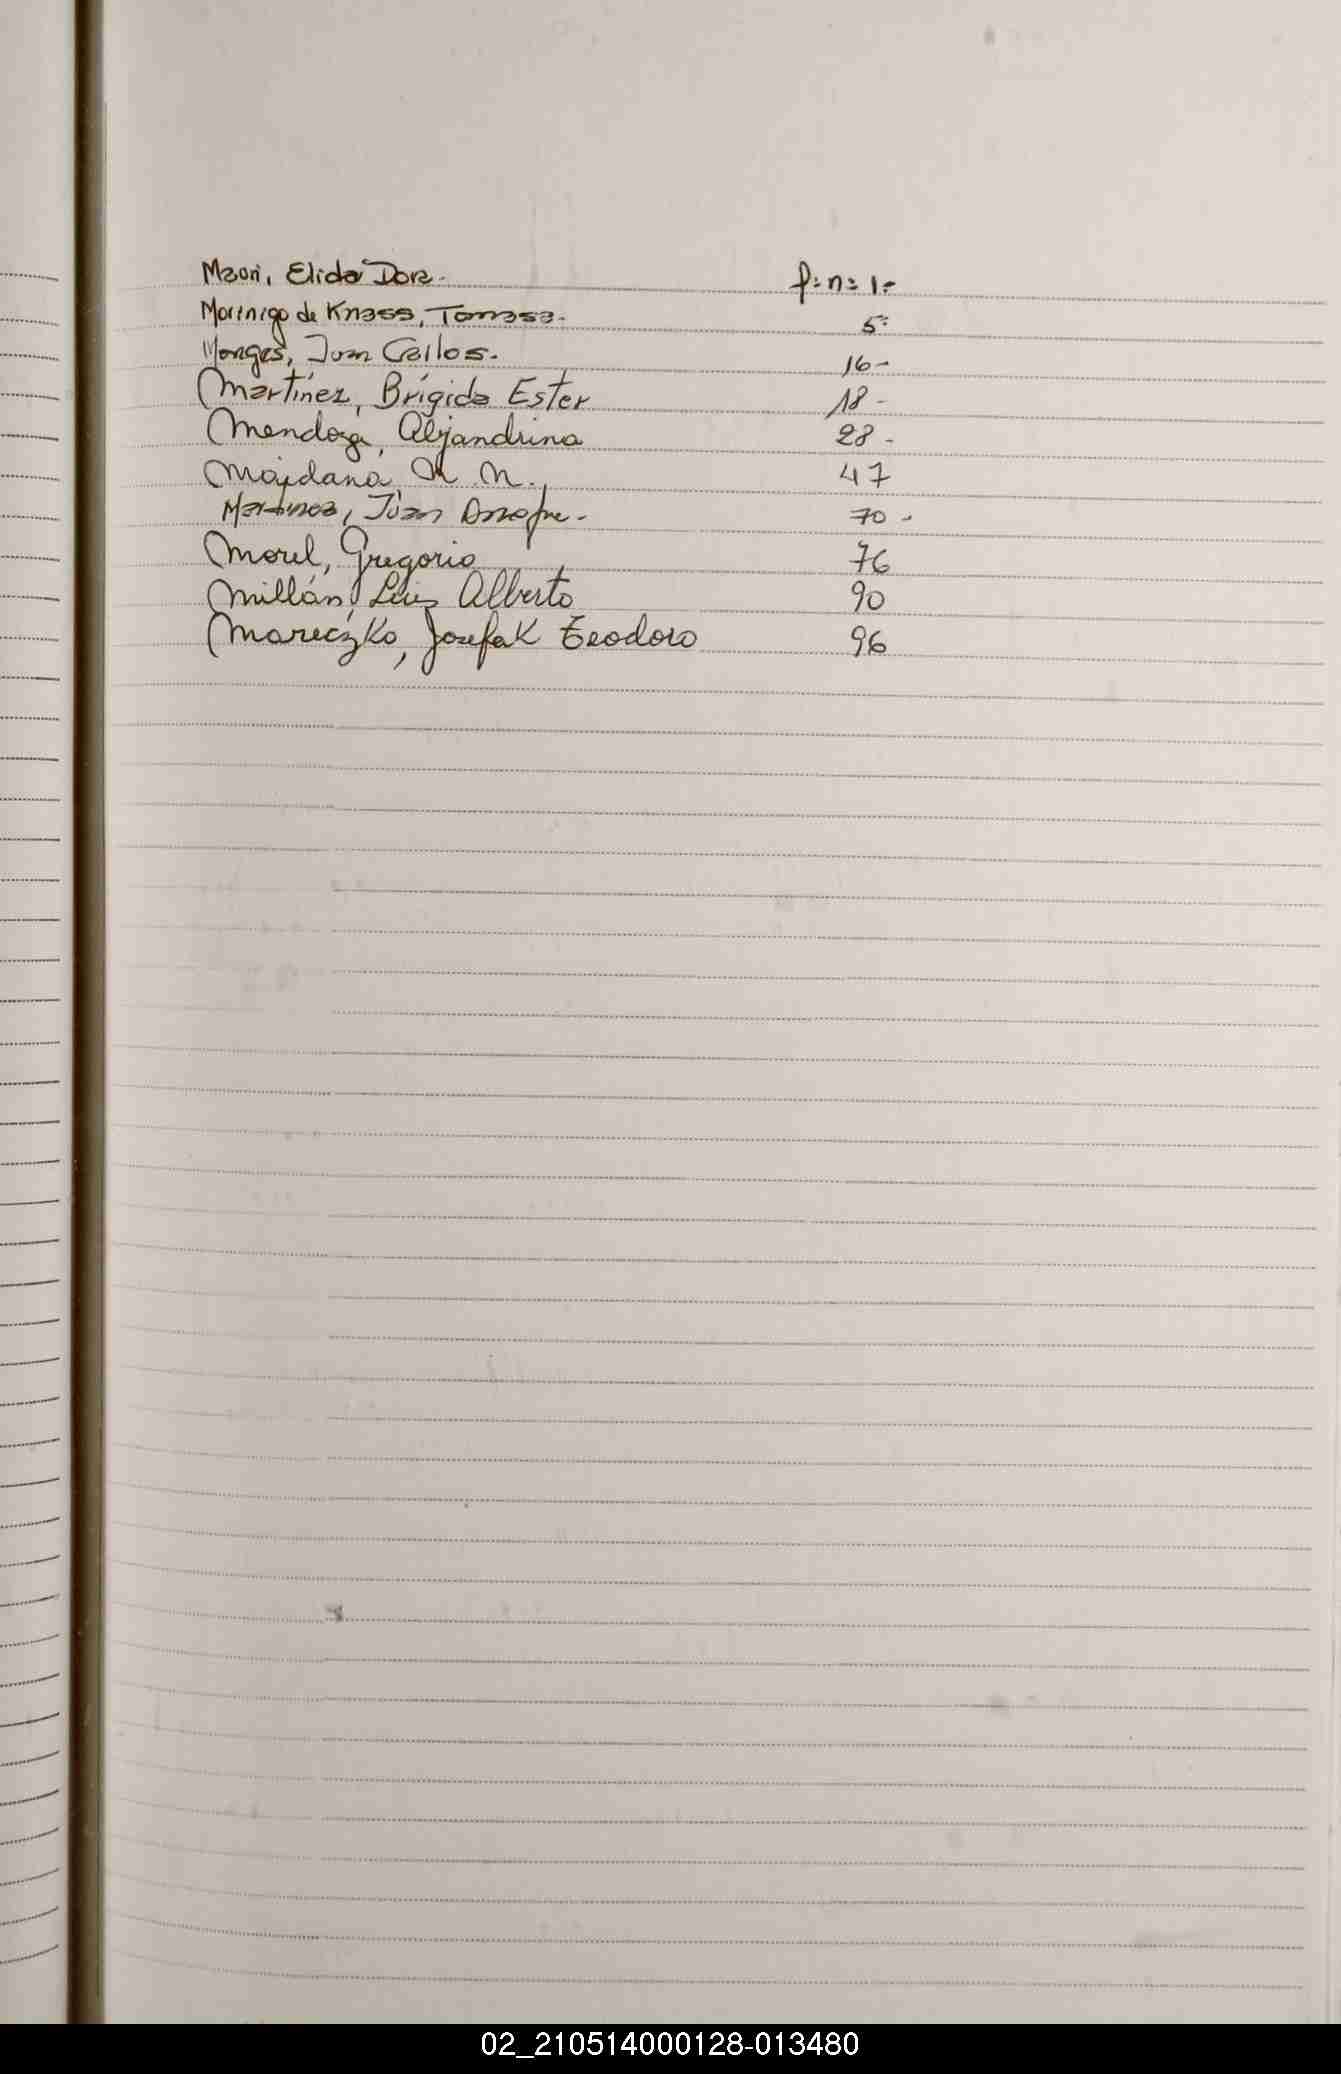 Maori, Elida Dora.- f:n= 1.-
Morinigo de Knass, Tomasa.- 5.-
Monges, Juan Carlos.- 16-
Martínez, Brígida Ester 18-
Mendoza, Alejandrina 28-
Majdana N. N. 47
Martinez, Juan Onofre.- 70-
Morel, Gregorio 76
Millán, Luis Alberto 90
Mareczko, Josefak Teodoro 96
02_210514000128-013480